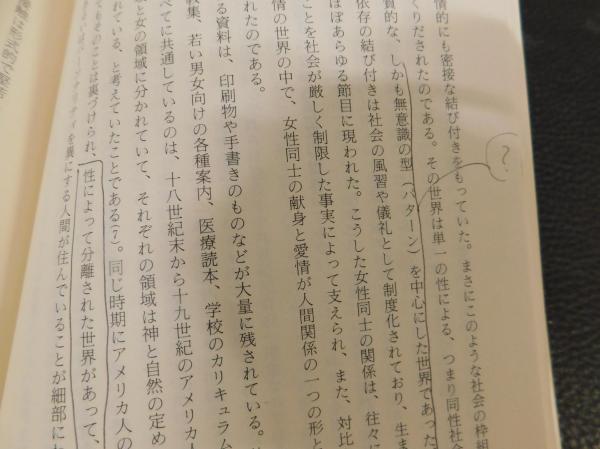 情的にも密接な結び付きをもっていた。まさにこのような社会の枠組
くりだされたのである。その世界は単一の性による、つまり同性社会
質的な、しかも無意識の型（パターン）を中心にした世界であった
依存の結び付きは社会の風習や儀礼として制度化されており、生ま
ほぼあらゆる節目に現われた。こうした女性同士の関係は、往々に
ことを社会が厳しく制限した事実によって支えられ、また、対比
情の世界の中で、女性同士の献身と愛情が人間関係の一つの形と
れたのである。
る資料は、印刷物や手書きのものなどが大量に残されている。
教集、若い男女向けの各種案内、医療読本、学校のカリキュラム
べてに共通しているのは、十八世紀末から十九世紀のアメリカ人
と女の領域に分かれていて、それぞれの領域は神と自然の定め
れている、と考えていたことである(7)。同じ時期にアメリカ人の
てもそのことは裏づけられ、性によって分離された世界があって、
パーソナリティを異にする人間が住んでいることが細部にわ
?